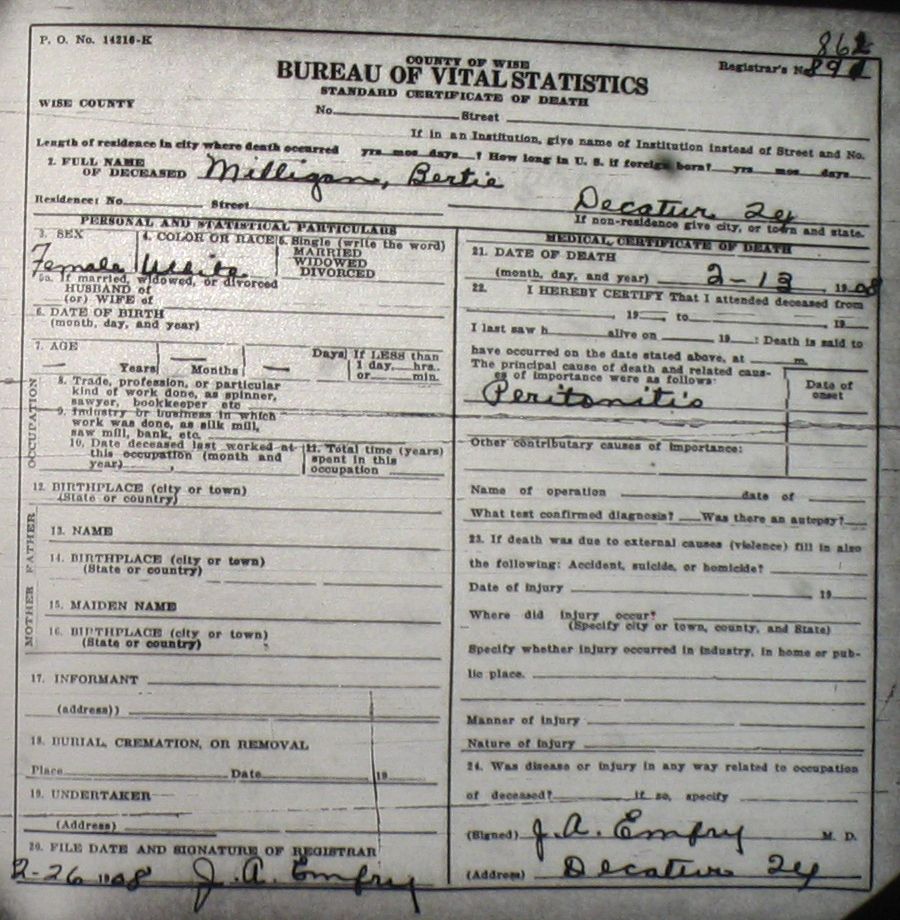 P. O. No. 14216-K
862
Registrar's No. 891
COUNTY OF WISE
BUREAU OF VITAL STATISTICS
STANDARD CERTIFICATE OF DEATH
WISE COUNTY
No. Street
If in an Institution, give name of Institution instead of Street and No.
Length of residence in city where death occurred yrs mos days ? How long in U. S. if foreign born? yrs mos days
2. FULL NAME OF DECEASED Milligan, Bertie
Residence: No. Street Decatur
If non-residence give city, or town and state.
PERSONAL AND STATISTICAL PARTICULARS
3. SEX Female
4. COLOR OR RACE White
5. Single (write the word)
MARRIED
WIDOWED
DIVORCED
5a. If married, widowed, or divorced
HUSBAND of
(or) WIFE of
6. DATE OF BIRTH
(month, day, and year)
7. AGE
Years Months Days
If LESS than
1 day hrs.
or min.
OCCUPATION
8. Trade, profession, or particular
kind of work done, as spinner,
sawyer, bookkeeper etc
9. Industry or business in which
work was done, as silk mill,
saw mill, bank, etc.
10. Date deceased last worked at
this occupation (month and
year)
11. Total time (years)
spent in this
occupation
12. BIRTHPLACE (city or town)
(State or country)
FATHER
13. NAME
14. BIRTHPLACE (city or town)
(State or country)
MOTHER
15. MAIDEN NAME
16. BIRTHPLACE (city or town)
(State or country)
17. INFORMANT
(address))
18. BURIAL, CREMATION, OR REMOVAL
Place Date 19
19. UNDERTAKER
(Address)
20. FILE DATE AND SIGNATURE OF REGISTRAR
2-26 1908 J. A. Embry
MEDICAL CERTIFICATE OF DEATH
21. DATE OF DEATH
(month, day, and year) 2-13 1908
22. I HEREBY CERTIFY That I attended deceased from
, 19 to , 19
I last saw h alive on , 19 : Death is said to
have occurred on the date stated above, at m.
The principal cause of death and related caus-
es of importance were as follows:
Date of
onset
Peritonitis
Other contributary causes of importance:
Name of operation date of
What test confirmed diagnosis? Was there an autopsy?
23. If death was due to external causes (violence) fill in also
the following: Accident, suicide, or homicide?
Date of injury 19
Where did injury occur?
(Specify city or town, county, and State)
Specify whether injury occurred in industry, in home or pub-
lic place.
Manner of injury
Nature of injury
24. Was disease or injury in any way related to occupation
of deceased? if so, specify
(Signed) J. A. Embry M. D.
(Address) Decatur